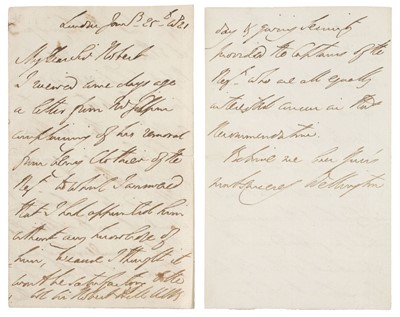 London Jan 25th 1821
My Dear Sir Robert
I received some days ago
a letter from Mr
complaining of his removal
from being Clothier of the
Regt. to which I answered
that I had appointed him
without any knowledge of
him, because I thought it
would be satisfactory to the
Sir Robert Hill
provided the Captains of the
Regt. who are all equally
interested concur in that
Recommendation.
Believe me
most sincerely Wellington